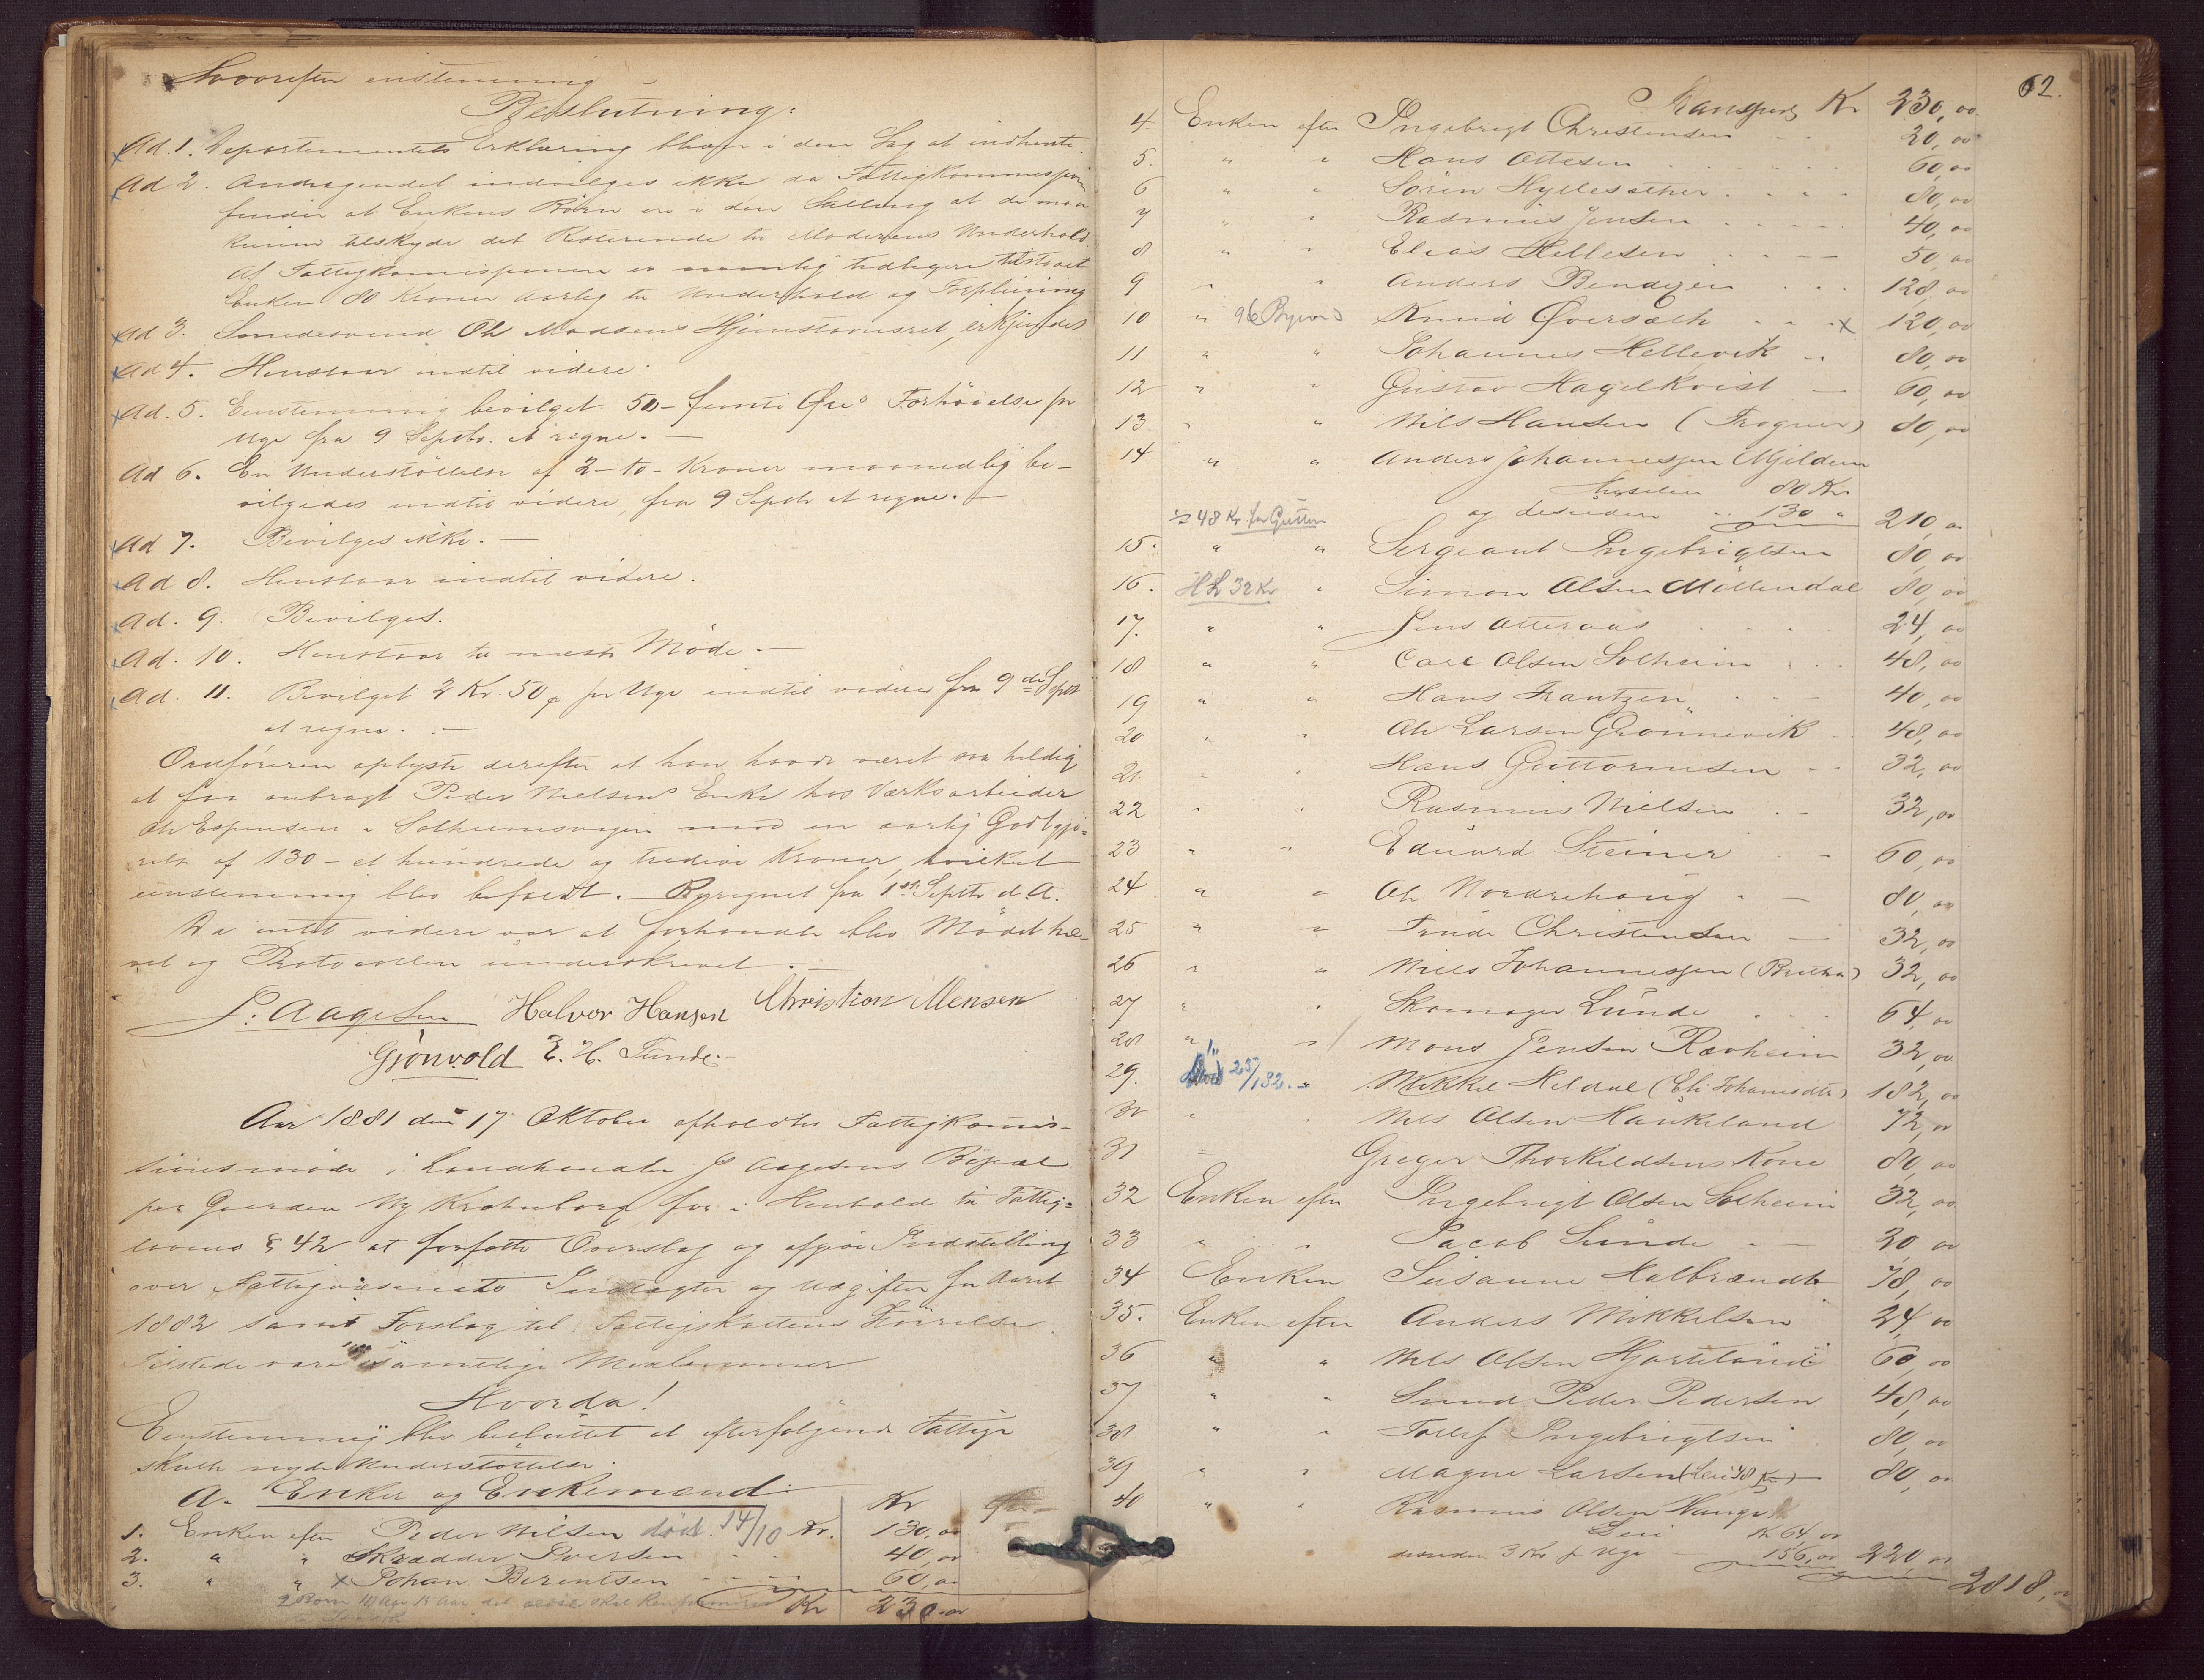 Hvorefter enstemmig
Beslutning:
Ad. 1. Departementets Erklæring bliver i den Sag at indhente.
Ad 2. Andragendet indvilges ikke da Fattigkommissionen
finder at Enkens Børn ere i den Stilling at de maa
kunne tilskyde det Resterende til Moderens Underhold.
Af Fattigkomissionen er nemlig tidligere tilstaaet
Enken 80 Kroner Aarlig til Underhold og Forpleining
Ad 3. Smedesvend Ole Madsens Hjemstavnsret, erkjendes
Ad 4. Henstaar indtil videre.
Ad. 5. Eenstemmig bevilget 50 - femti Øre Forhøielse pr
Uge fra 9 Septbr. at regne. —
Ad 6. En Understøttelse af 2 - to - Kroner maanedlig be-
vilgedes indtil videre, fra 9 Septbr at regne. —
Ad 7. Bevilges ikke. —
Ad 8. Henstaar indtil videre.
Ad. 9. Bevilges.
Ad. 10. Henstaar til næste Møde. —
Ad. 11. Bevilget 2 Kr. 50 pr Uge indtil videre fra 9de Septbr
at regne. —
Ordføreren oplyste derefter at han havde været saa heldig
at faa anbragt Peder Nielsens Enke hos Værksarbeider
Ole Espensen i Solheimsvigen mod en aarlig Godtgjø=
relse af 130 - et hundrede og tredive Kroner, hvilket
eenstemmig blev bifaldt. — Beregnet fra 1ste Septbr d. A.
Da intet videre var at forhandle blev Mødet hæ-
vet og Protocollen underskrevet. —
P. Aagesen Halvor Hansen Christian Monsen
Grønvold E. H. Tunde. -
Aar 1881 den 17 Oktober afholdtes Fattigkomis-
sionsmøde i Landhandler P Aagesens Bopæl
paa Gaarden Ny Krohnborg for i Henhold til Fattig=
lovens § 42 at forfatte Overslag og afgive Indstilling
over Fattigvæsenets Indtægter og Udgifter for Aaret
1882 samt Forslag til Fattigskattens Størrelse.
Tilstede vare samtlige Medlemmer
Hvorda!
Eenstemmig blev besluttet at efterfølgende Fattige
skulle nyde Understøttelse.
A. Enker og Enkemænd. Kr Øre
1. Enken efter Peder Nilsen død 14/10 Kr. 130,00
2. " " Skrædder Iversen 40,00
3. " " x Johan Berentsen 60,00
Kr 230,00
62.
Transport Kr 230,00
4. Enken efter Ingebrigt Christensen 20,00
5. " " Hans Ottesen 60,00
6 " " Søren Hyllesæther 80,00
7 " " Rasmus Jensen 40,00
8 " " Elias Hellesen 50,00
9 " " Anders Bendixen 128,00
10 " 96 Knud Øversæth x 120,00
11 " " Johannes Hellevik 80,00
12 " " Gustav Hagelkvist 60,00
13 " " Nils Hansen (Frogner) 80,00
14 " " Anders Johannessen Mjeldem
80 Kr
÷ 48 Kr for Gutten og desuden 130 " 210,00
15. " " Sergeant Ingebrigtsen 80,00
16. HL 32 Kr " Simon Olsen Møllendal 80,00
17. " " Jens Atteraas 24,00
18 " " Carl Olsen Solheim 48,00
19 " " Hans Frantzen 40,00
20 " " Ole Larsen Grønnevik 48,00
21. " " Hans Guttormsen 32,00
22 " " Rasmus Nielsen 32,00
23 " " Eduard Steiner 60,00
24 " " Ole Nordrehaug 80,00
25 " " Trude Christensen 32,00
26 " " Nils Johannessen 32,00
27 " " Skomager Lunde 64,00
28 " " Mons Jensen Ravheim 32,00
29. 25/1 82. " Mikkel Heldal (Eli Johannesdtr) 182,00
30 " " Nils Olsen Haukeland 72,00
31 Greger Thorkildsens Kone 80,00
32 Enken efter Ingebrigt Olsen Solheim 32,00
33 " " Jacob Lunde 20,00
34 Enken Susanne Halbrændt 78,00
35. Enken efter Anders Mikkelsen 24,00
36 " " Nils Olsen Hjorteland 60,00
37 " " Smed Peder Pedersen 48,00
38 " " Tollef Ingebrigtsen 80,00
39 " " Magne Larsen (Leie 48 Kr) 80,00
40 " " Rasmus Olsen Hauge
Leie Kr 64,00
desuden 3 Kr pr Uge 156,00 220,00
2818,00